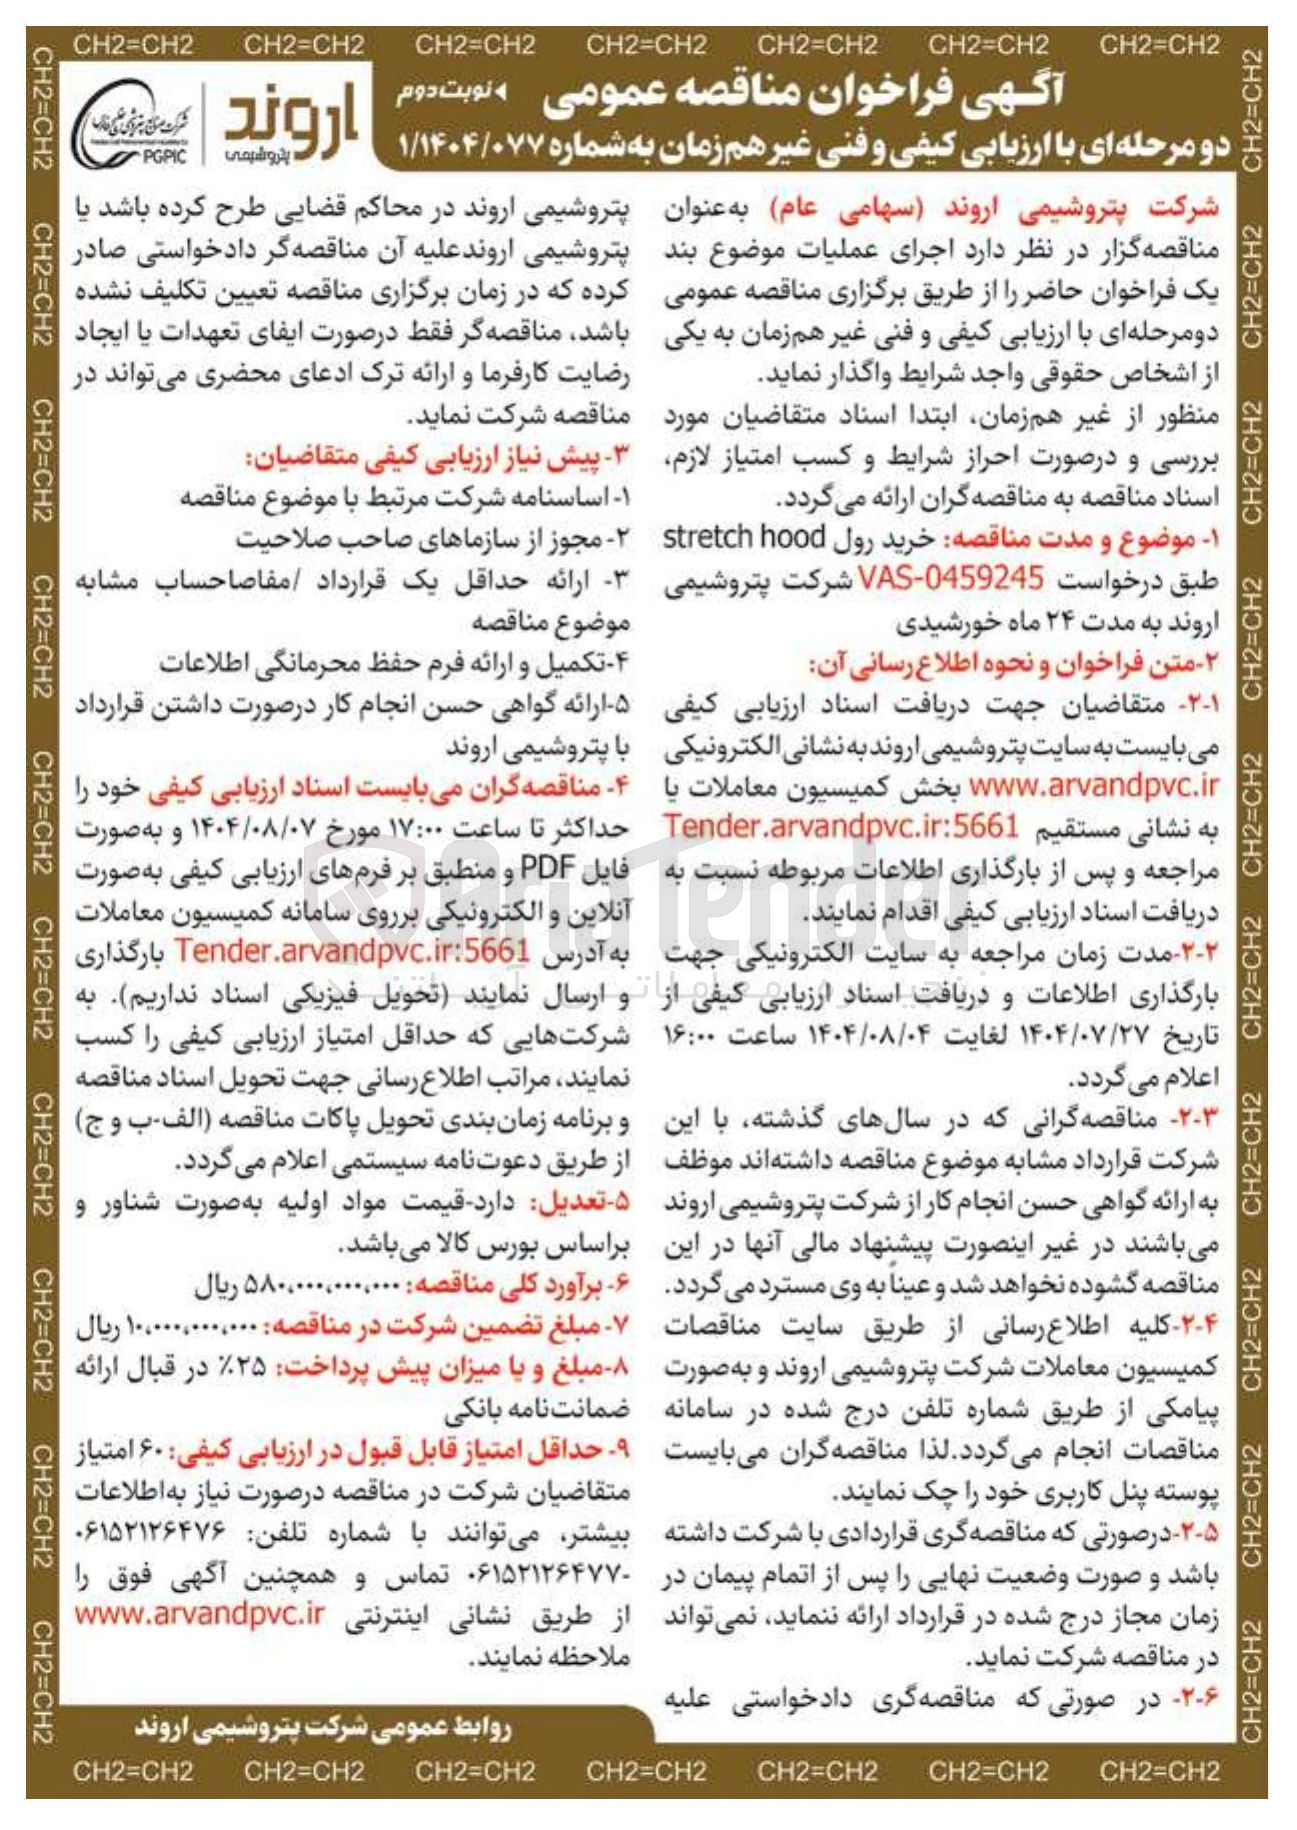 CH2=CH2 CH2=CH2 CH2=CH2 CH2=CH2 CH2=CH2 CH2=CH2 CH2=CH2
آگهی فراخوان مناقصه عمومی
نوبت دوم
دو مرحله‌ای با ارزیابی کیفی و فنی غیر هم‌زمان به‌شماره ۱/۱۴۰۴/۰۷۷
اروند
پتروشیمی
PGPIC
شرکت پتروشیمی اروند (سهامی عام) به‌عنوان
مناقصه‌گزار در نظر دارد اجرای عملیات موضوع بند
یک فراخوان حاضر را از طریق برگزاری مناقصه عمومی
دومرحله‌ای با ارزیابی کیفی و فنی غیر هم‌زمان به یکی
از اشخاص حقوقی واجد شرایط واگذار نماید.
منظور از غیر هم‌زمان، ابتدا اسناد متقاضیان مورد
بررسی و درصورت احراز شرایط و کسب امتیاز لازم،
اسناد مناقصه به مناقصه‌گران ارائه می‌گردد.
۱- موضوع و مدت مناقصه: خرید رول stretch hood
طبق درخواست VAS-0459245 شرکت پتروشیمی
اروند به مدت ۲۴ ماه خورشیدی
۲-متن فراخوان و نحوه اطلاع‌رسانی آن:
۲-۱- متقاضیان جهت دریافت اسناد ارزیابی کیفی
می‌بایست به سایت پتروشیمی اروند به نشانی الکترونیکی
www.arvandpvc.ir بخش کمیسیون معاملات یا
به نشانی مستقیم Tender.arvandpvc.ir:5661
مراجعه و پس از بارگذاری اطلاعات مربوطه نسبت به
دریافت اسناد ارزیابی کیفی اقدام نمایند.
۲-۲-مدت زمان مراجعه به سایت الکترونیکی جهت
بارگذاری اطلاعات و دریافت اسناد ارزیابی کیفی از
تاریخ ۱۴۰۴/۰۷/۲۷ لغایت ۱۴۰۴/۰۸/۰۴ ساعت ۱۶:۰۰
اعلام می‌گردد.
۲-۳- مناقصه‌گرانی که در سال‌های گذشته، با این
شرکت قرارداد مشابه موضوع مناقصه داشته‌اند موظف
به ارائه گواهی حسن انجام کار از شرکت پتروشیمی اروند
می‌باشند در غیر اینصورت پیشنهاد مالی آنها در این
مناقصه گشوده نخواهد شد و عیناً به وی مسترد می‌گردد.
۲-۴-کلیه اطلاع‌رسانی از طریق سایت مناقصات
کمیسیون معاملات شرکت پتروشیمی اروند و به‌صورت
پیامکی از طریق شماره تلفن درج شده در سامانه
مناقصات انجام می‌گردد.لذا مناقصه‌گران می‌بایست
پوسته پنل کاربری خود را چک نمایند.
۲-۵-درصورتی که مناقصه‌گری قراردادی با شرکت داشته
باشد و صورت وضعیت نهایی را پس از اتمام پیمان در
زمان مجاز درج شده در قرارداد ارائه ننماید، نمی‌تواند
در مناقصه شرکت نماید.
۲-۶- در صورتی که مناقصه‌گری دادخواستی علیه
پتروشیمی اروند در محاکم قضایی طرح کرده باشد یا
پتروشیمی اروندعلیه آن مناقصه‌گر دادخواستی صادر
کرده که در زمان برگزاری مناقصه تعیین تکلیف نشده
باشد، مناقصه‌گر فقط درصورت ایفای تعهدات یا ایجاد
رضایت کارفرما و ارائه ترک ادعای محضری می‌تواند در
مناقصه شرکت نماید.
۳- پیش نیاز ارزیابی کیفی متقاضیان:
۱- اساسنامه شرکت مرتبط با موضوع مناقصه
۲- مجوز از سازماهای صاحب صلاحیت
۳- ارائه حداقل یک قرارداد /مفاصاحساب مشابه
موضوع مناقصه
۴-تکمیل و ارائه فرم حفظ محرمانگی اطلاعات
۵-ارائه گواهی حسن انجام کار درصورت داشتن قرارداد
با پتروشیمی اروند
۴- مناقصه‌گران می‌بایست اسناد ارزیابی کیفی خود را
حداکثر تا ساعت ۱۷:۰۰ مورخ ۱۴۰۴/۰۸/۰۷ و به‌صورت
فایل PDF و منطبق بر فرم‌های ارزیابی کیفی به‌صورت
آنلاین و الکترونیکی برروی سامانه کمیسیون معاملات
به آدرس Tender.arvandpvc.ir:5661 بارگذاری
و ارسال نمایند (تحویل فیزیکی اسناد نداریم). به
شرکت‌هایی که حداقل امتیاز ارزیابی کیفی را کسب
نمایند، مراتب اطلاع‌رسانی جهت تحویل اسناد مناقصه
و برنامه زمان‌بندی تحویل پاکات مناقصه (الف-ب و ج)
از طریق دعوت‌نامه سیستمی اعلام می‌گردد.
۵-تعدیل: دارد-قیمت مواد اولیه به‌صورت شناور و
براساس بورس کالا می‌باشد.
۶- برآورد کلی مناقصه: ۵۸۰،۰۰۰،۰۰۰،۰۰۰ ریال
۷- مبلغ تضمین شرکت در مناقصه: ۱۰،۰۰۰،۰۰۰،۰۰۰ ریال
۸-مبلغ و یا میزان پیش پرداخت: ۲۵٪ در قبال ارائه
ضمانت‌نامه بانکی
۹- حداقل امتیاز قابل قبول در ارزیابی کیفی: ۶۰ امتیاز
متقاضیان شرکت در مناقصه درصورت نیاز به‌اطلاعات
بیشتر، می‌توانند با شماره تلفن: ۰۶۱۵۲۱۲۶۴۷۶
-۰۶۱۵۲۱۲۶۴۷۷ تماس و همچنین آگهی فوق را
از طریق نشانی اینترنتی www.arvandpvc.ir
ملاحظه نمایند.
روابط عمومی شرکت پتروشیمی اروند
CH2=CH2 CH2=CH2 CH2=CH2 CH2=CH2 CH2=CH2 CH2=CH2 CH2=CH2